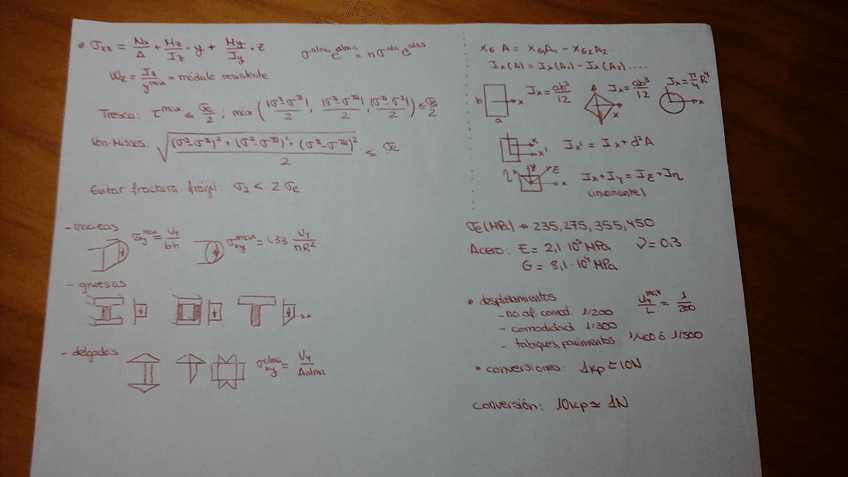 • σxx = Nx/A + Mz/Iz · y + My/Iy · z
σ^alma e^alma = n σ^alas e^alas
Wz = Iz/y^max = módulo resistente
Tresca: τ^max ≤ σe/2 ; máx (|σ^I-σ^II|/2, |σ^I-σ^III|/2, |σ^II-σ^III|/2) ≤ σe/2
Von-Misses: √((σ^I-σ^II)²+(σ^I-σ^III)²+(σ^II-σ^III)²/2) ≤ σe
Evitar fractura frágil: σI < 2 σe
- macizas
σxy^max = Vy/bh
σxy^max = 1,33 Vy/πR²
- gruesas
x
- delgadas
σxy^alma = Vy/Aalma
xG A = xG1A1 - xG2A2 ...
Ix(A) = Ix(A1) - Ix(A1) ....
b a x Ix = ab³/12
x Ix = ab³/12
x Ix = π/4 R⁴
x x' Ix' = Ix + d²A
η y ξ x Ix + Iy = Iξ + Iη
(invariante)
σe (MPa) → 235, 275, 355, 450
Acero: E = 2,1·10⁵ MPa ν = 0,3
G = 8,1·10⁴ MPa
• desplazamientos
uy^max/L = 1/200
- no af. comod. 1:200
- comodidad 1:300
- tabiques, pavimentos 1/400 ó 1:500
• conversiones: 1kp ≃ 10N
conversión: 10kp ≃ 1N